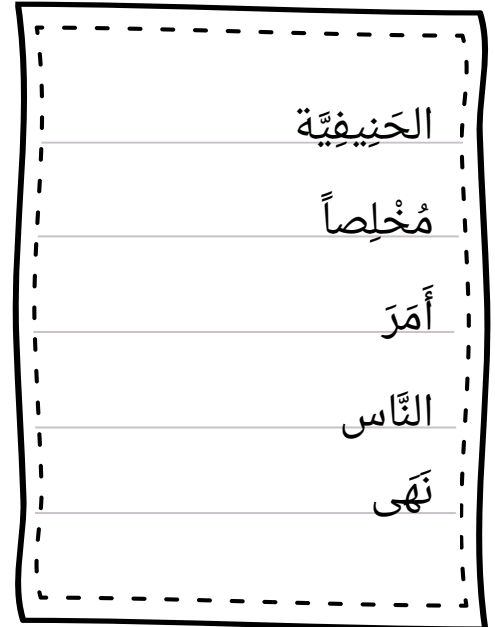 الحَنِيفِيَّة
مُخْلِصاً
أَمَرَ
النَّاس
نَهَى